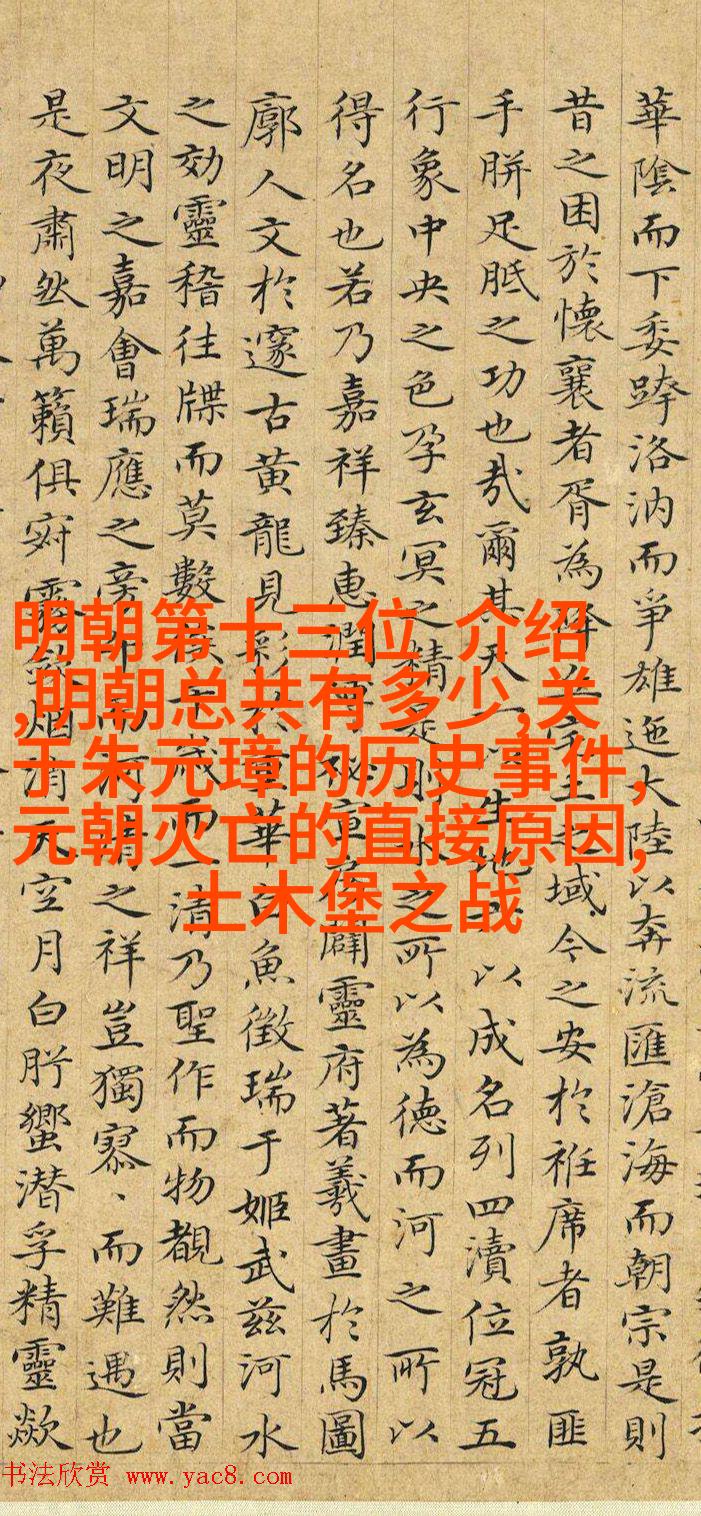 華陰而下委跨洛汭而爭雄迤大陸以奔流匯滄海而朝宗是則
昔之困於懷襄者胥為降丘宅土之域今之安於袵席者孰匪
手胼足胝之功也哉爾其天一以生地六以成名列四瀆位冠五
行象中央之色孕玄冥之精是則水之所以為德而河之所以
得名也若乃嘉祥臻惠潤秘宣闢靈府著羲畫於馬圖
廓人文於邃古黃龍見彩於重華白魚徵瑞于姬武茲河水
之効靈稽往牒而莫數俟千歲而一清乃聖作而物覩然則當
文明之嘉會瑞應之旁午而河清之祥豈獨寥、而難遇也
是夜肅然萬籟俱寂霧斂烟消天空月白肸蠁潜孚精靈歘
明朝第十三位 介绍
,明朝总共有多少,关
于朱元璋的历史事件,
元朝灭亡的直接原因,
土木堡之战
书法欣赏 www.yac8.com